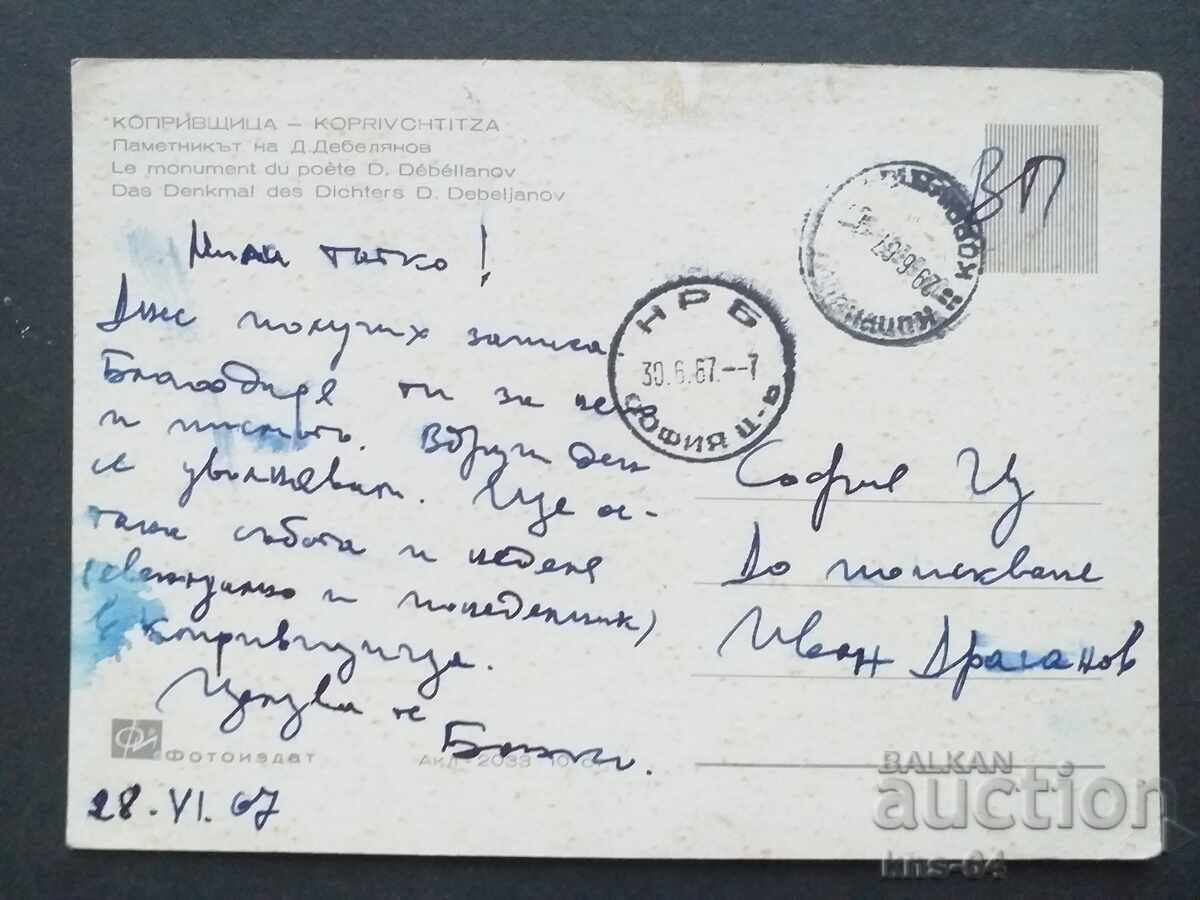 КОПРИВЩИЦА – KOPRIVCHTITZA
Паметникът на Д. Дебелянов
Le monument du poète D. Débélianov
Das Denkmal des Dichters D. Debeljanov
ВП
Мили татко!
Днес получих записа.
Благодаря ти за него
и писмото. В други ден
се увол
Още ос-
тани събота и неделя
(евентуално и понеделник)
в Копривщица.
Целува те
28.VI.67
НРБ
30.6.67.--7
СОФИЯ II-В
29.6.67
София Ц
До поискване
Иван Драганов
ФОТОИЗДАТ
Акл. 2033
BALKAN
auction
kns-64